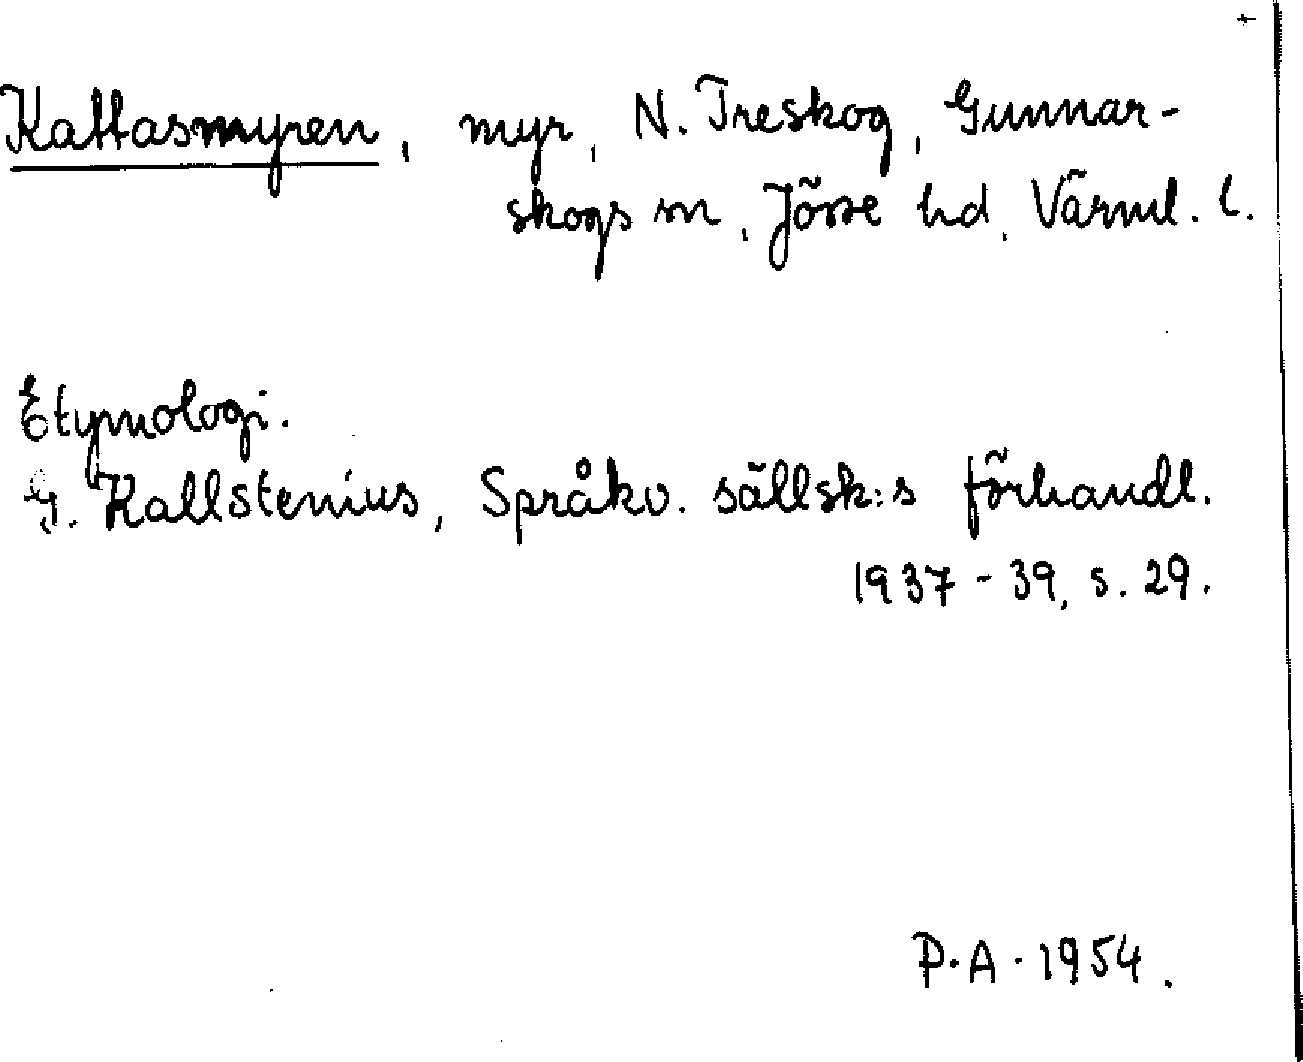 Kattasmyren, myr, N. Treskog, Gunnar-
skogs sn, Jösse hd, Värml. l.
Etymologi.
G. Kallstenius, Språkv. sällsk:s förhandl.
1937-39, s. 29.
P.A. 1954.